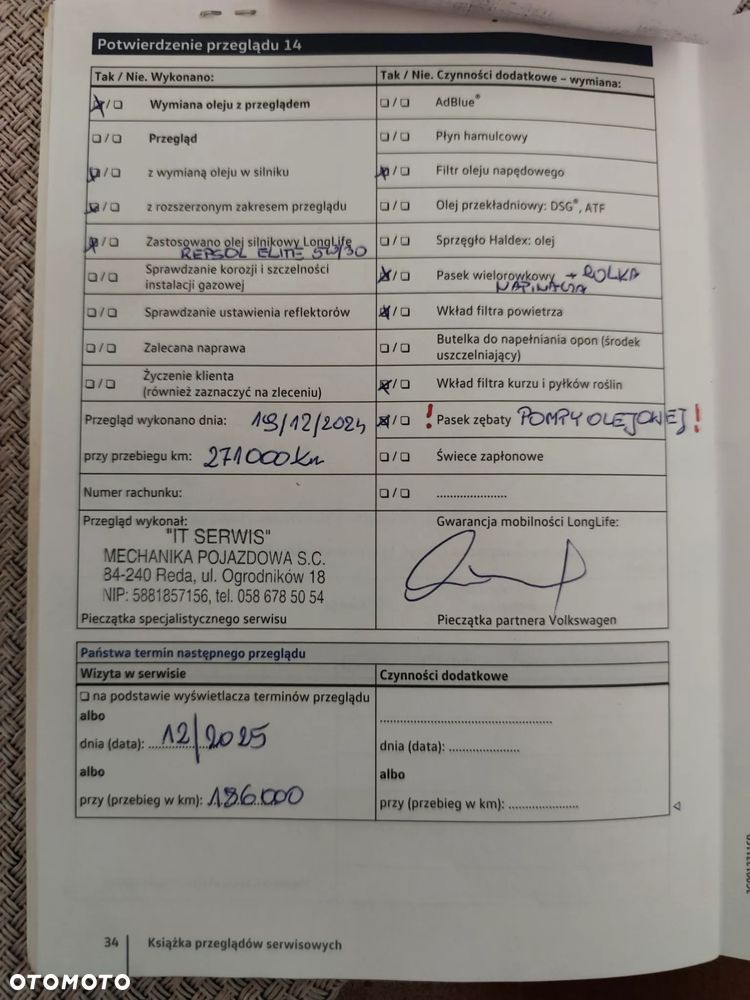 Potwierdzenie przeglądu 14
Tak / Nie. Wykonano:
☒/☐ Wymiana oleju z przeglądem
☐/☐ Przegląd
☒/☐ z wymianą oleju w silniku
☒/☐ z rozszerzonym zakresem przeglądu
☒/☐ Zastosowano olej silnikowy LongLife
REPSOL ELITE 5W/30
☐/☐ Sprawdzanie korozji i szczelności
instalacji gazowej
☐/☐ Sprawdzanie ustawienia reflektorów
☐/☐ Zalecana naprawa
☐/☐ Życzenie klienta
(również zaznaczyć na zleceniu)
Przegląd wykonano dnia: 19/12/2024
przy przebiegu km: 271000km
Numer rachunku:
Przegląd wykonał:
"IT SERWIS"
MECHANIKA POJAZDOWA S.C.
84-240 Reda, ul. Ogrodników 18
NIP: 5881857156, tel. 058 678 50 54
Pieczątka specjalistycznego serwisu
Tak / Nie. Czynności dodatkowe – wymiana:
☐/☐ AdBlue®
☐/☐ Płyn hamulcowy
☒/☐ Filtr oleju napędowego
☐/☐ Olej przekładniowy: DSG®, ATF
☐/☐ Sprzęgło Haldex: olej
☒/☐ Pasek wielorowkowy + ROLKA
NAPINACZA
☒/☐ Wkład filtra powietrza
☐/☐ Butelka do napełniania opon (środek
uszczelniający)
☒/☐ Wkład filtra kurzu i pyłków roślin
☒/☐ ! Pasek zębaty POMPY OLEJOWEJ !
☐/☐ Świece zapłonowe
☐/☐ .....................
Gwarancja mobilności LongLife:
Pieczątka partnera Volkswagen
Państwa termin następnego przeglądu
Wizyta w serwisie
☐ na podstawie wyświetlacza terminów przeglądu
albo
dnia (data): 12/2025
albo
przy (przebieg w km): 186.000
Czynności dodatkowe
....................................................
dnia (data): .....................
albo
przy (przebieg w km): .....................
34 Książka przeglądów serwisowych
OTOMOTO